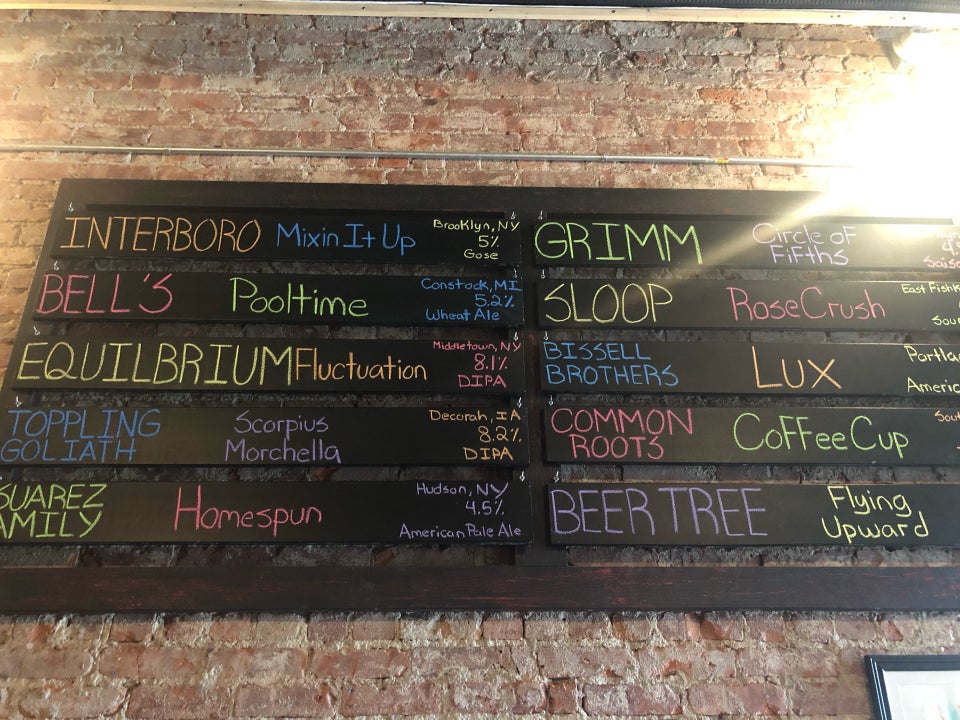 INTERBORO Mixin It Up
Brooklyn, NY
5%
Gose
BELL'S Pooltime
Constock, MI
5.2%
Wheat Ale
EQUILBRIUM Fluctuation
Middletown, NY
8.1%
DIPA
TOPPLING
GOLIATH
Scorpius
Morchella
Decorah, IA
8.2%
DIPA
SUAREZ
AMILY
Homespun
Hudson, NY
4.5%
American Pale Ale
GRIMM
Circle of
Fifths
Sais
SLOOP RoseCrush
East Fishk
Sou
BISSELL
BROTHERS
LUX
Portla
Americ
COMMON
ROOTS
Coffee Cup
Sout
BEER TREE
Flying
Upward